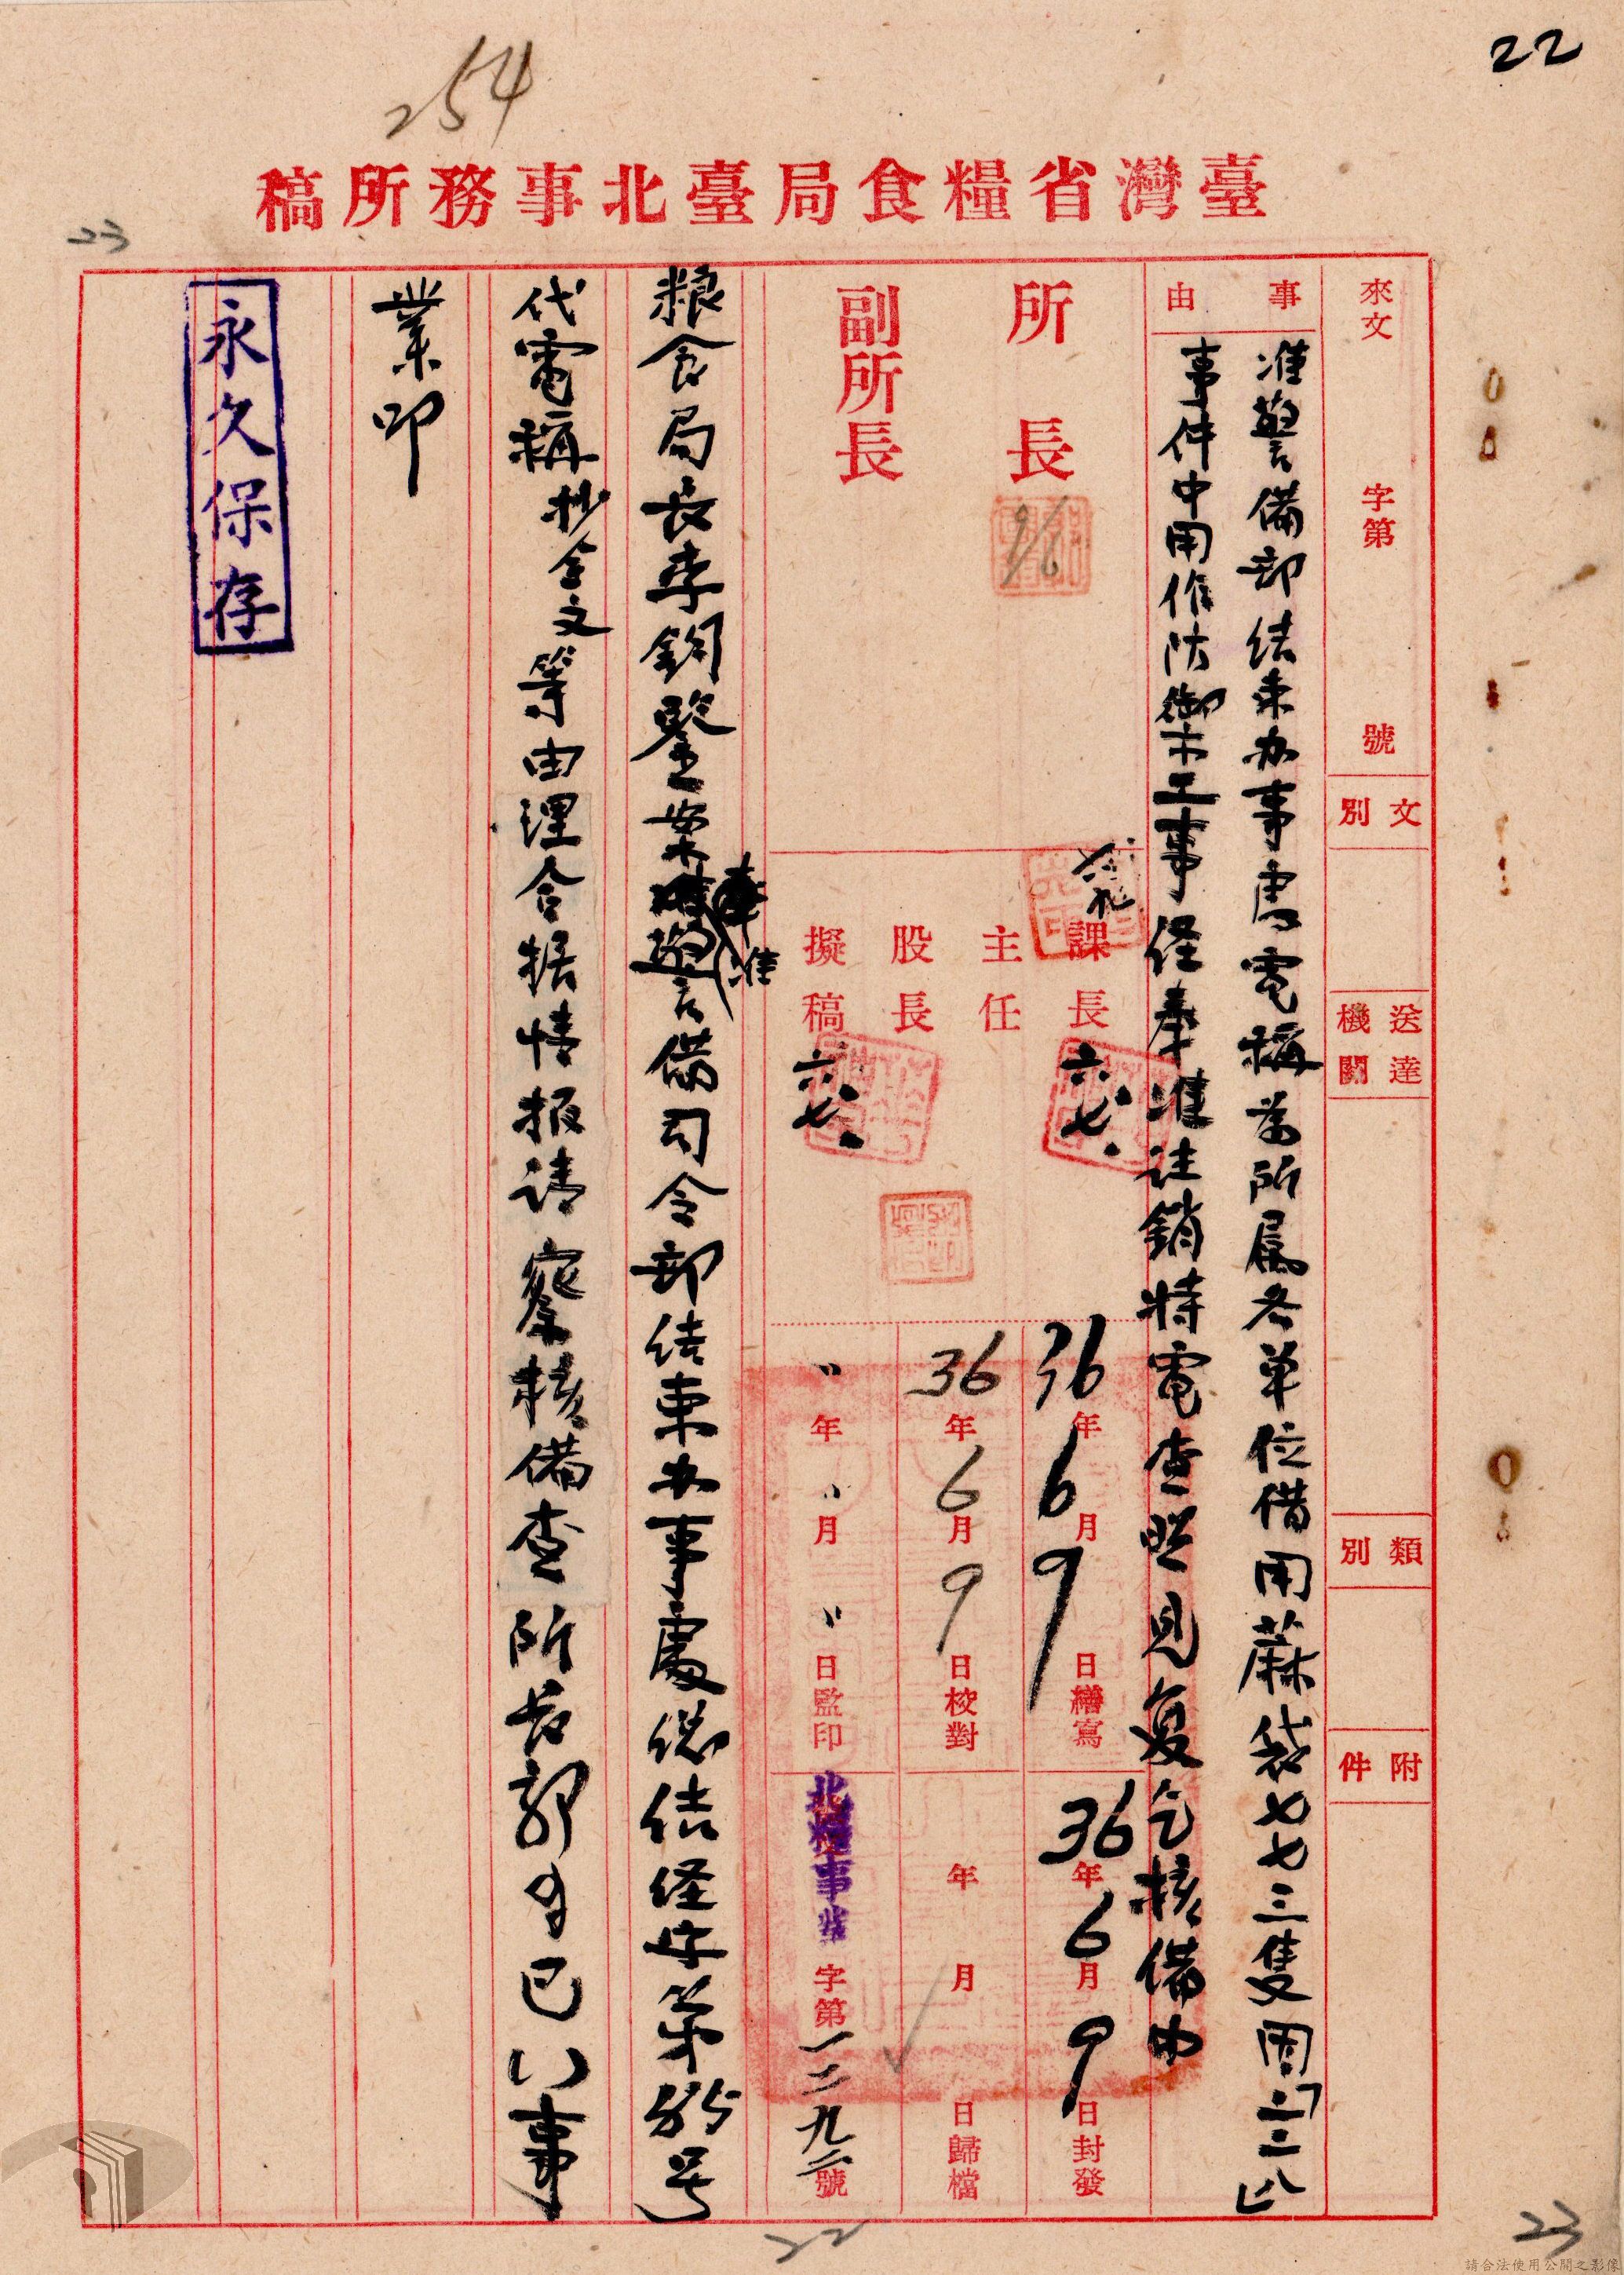 22
254
臺灣省糧食局臺北事務所稿
23
來文 字第 號
文別
送達機關
類別
附件
事由
准警備部結束办事處電稱並所屬各單位借用蔴袋七七三隻因「二二八」
事件中用作防御工事經奉准註銷特電查照見复乞核備由
所長
副所長
9/6
課長
主任
股長
擬稿
六七
六七
36年6月9日繕寫
36年6月9日校對
〃年〃月〃日監印
36年6月9日封發
年 月 日歸檔
字第一二九二號
粮食局長李鈞鑒業奉准警備司令部結束办事處總結經字第 号
代電稱抄全文等由理合據情报请察核備查所長郭 巳 事
業叩
永久保存
22
23
請合法使用公開之影像